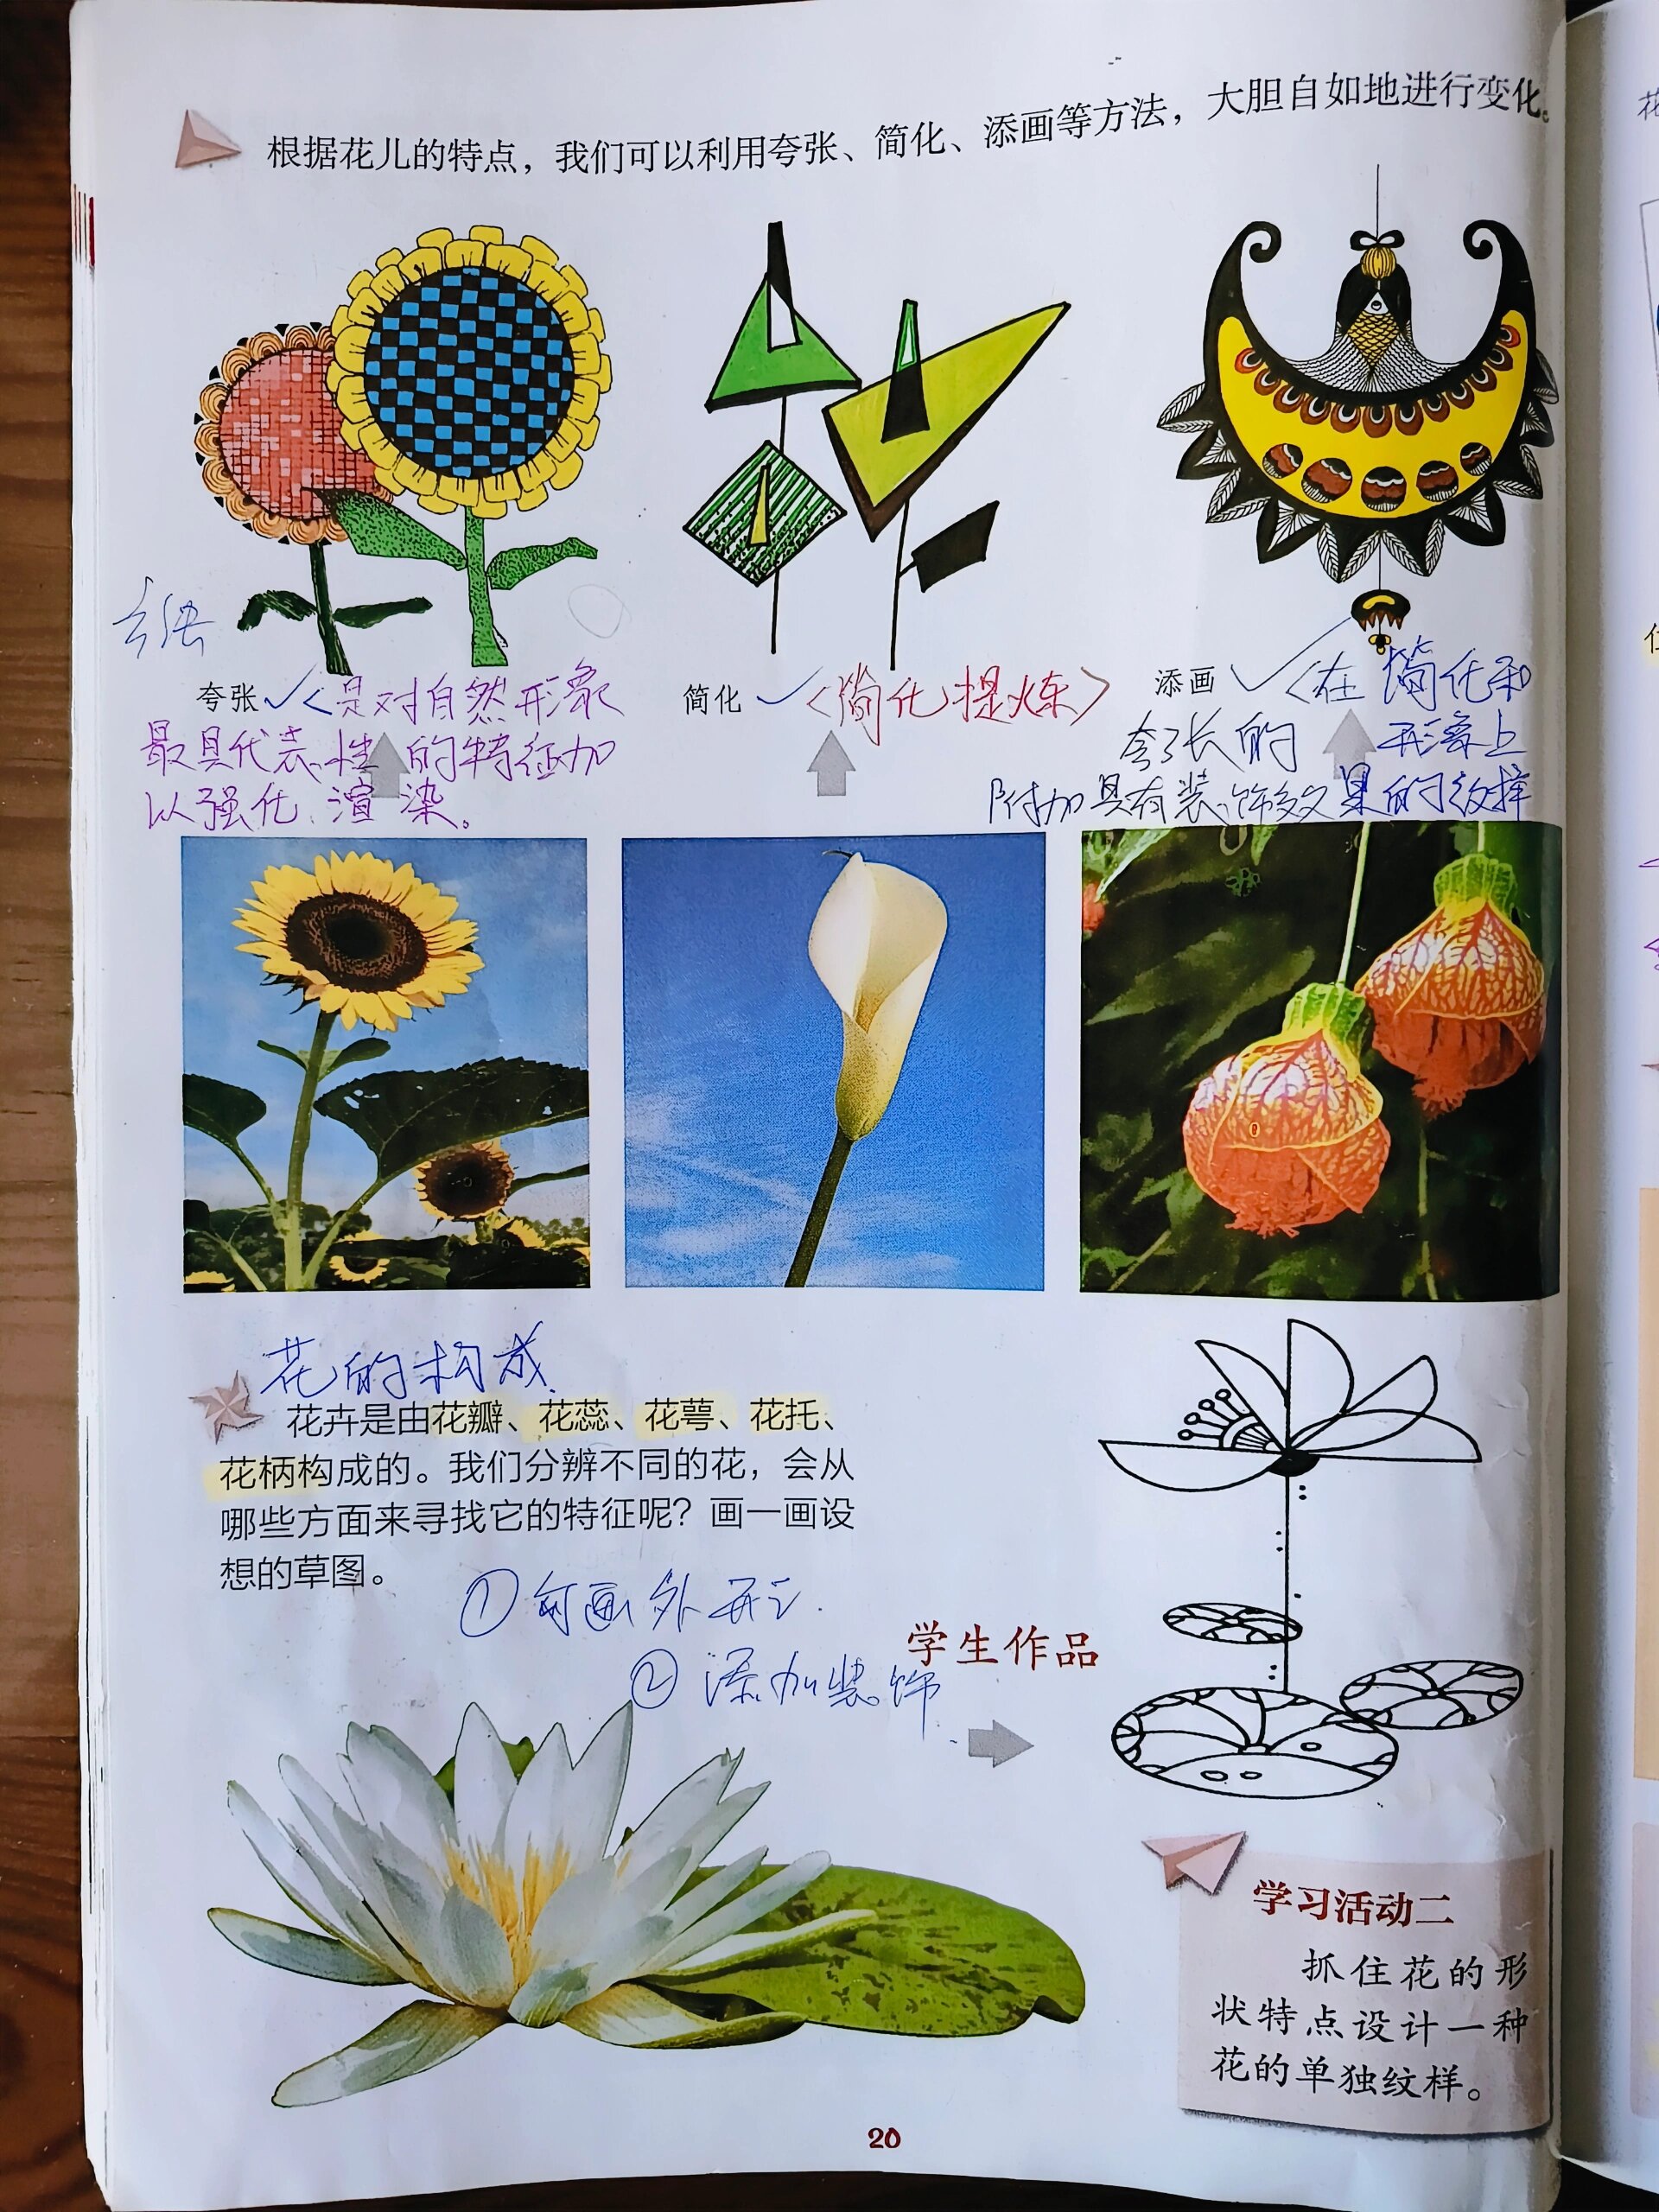 根据花儿的特点，我们可以利用夸张、简化、添画等方法，大胆自如地进行变化。
夸张 <是对自然形象
最具代表性的特征加
以强化、渲染。
简化 <简化提炼>
添画 <在简化和
夸张的形象上
附加具有装饰效果的纹样
花的构成
花卉是由花瓣、花蕊、花萼、花托、
花柄构成的。我们分辨不同的花，会从
哪些方面来寻找它的特征呢？画一画设
想的草图。
①勾画外形.
②添加装饰
学生作品
学习活动二
抓住花的形
状特点设计一种
花的单独纹样。
20